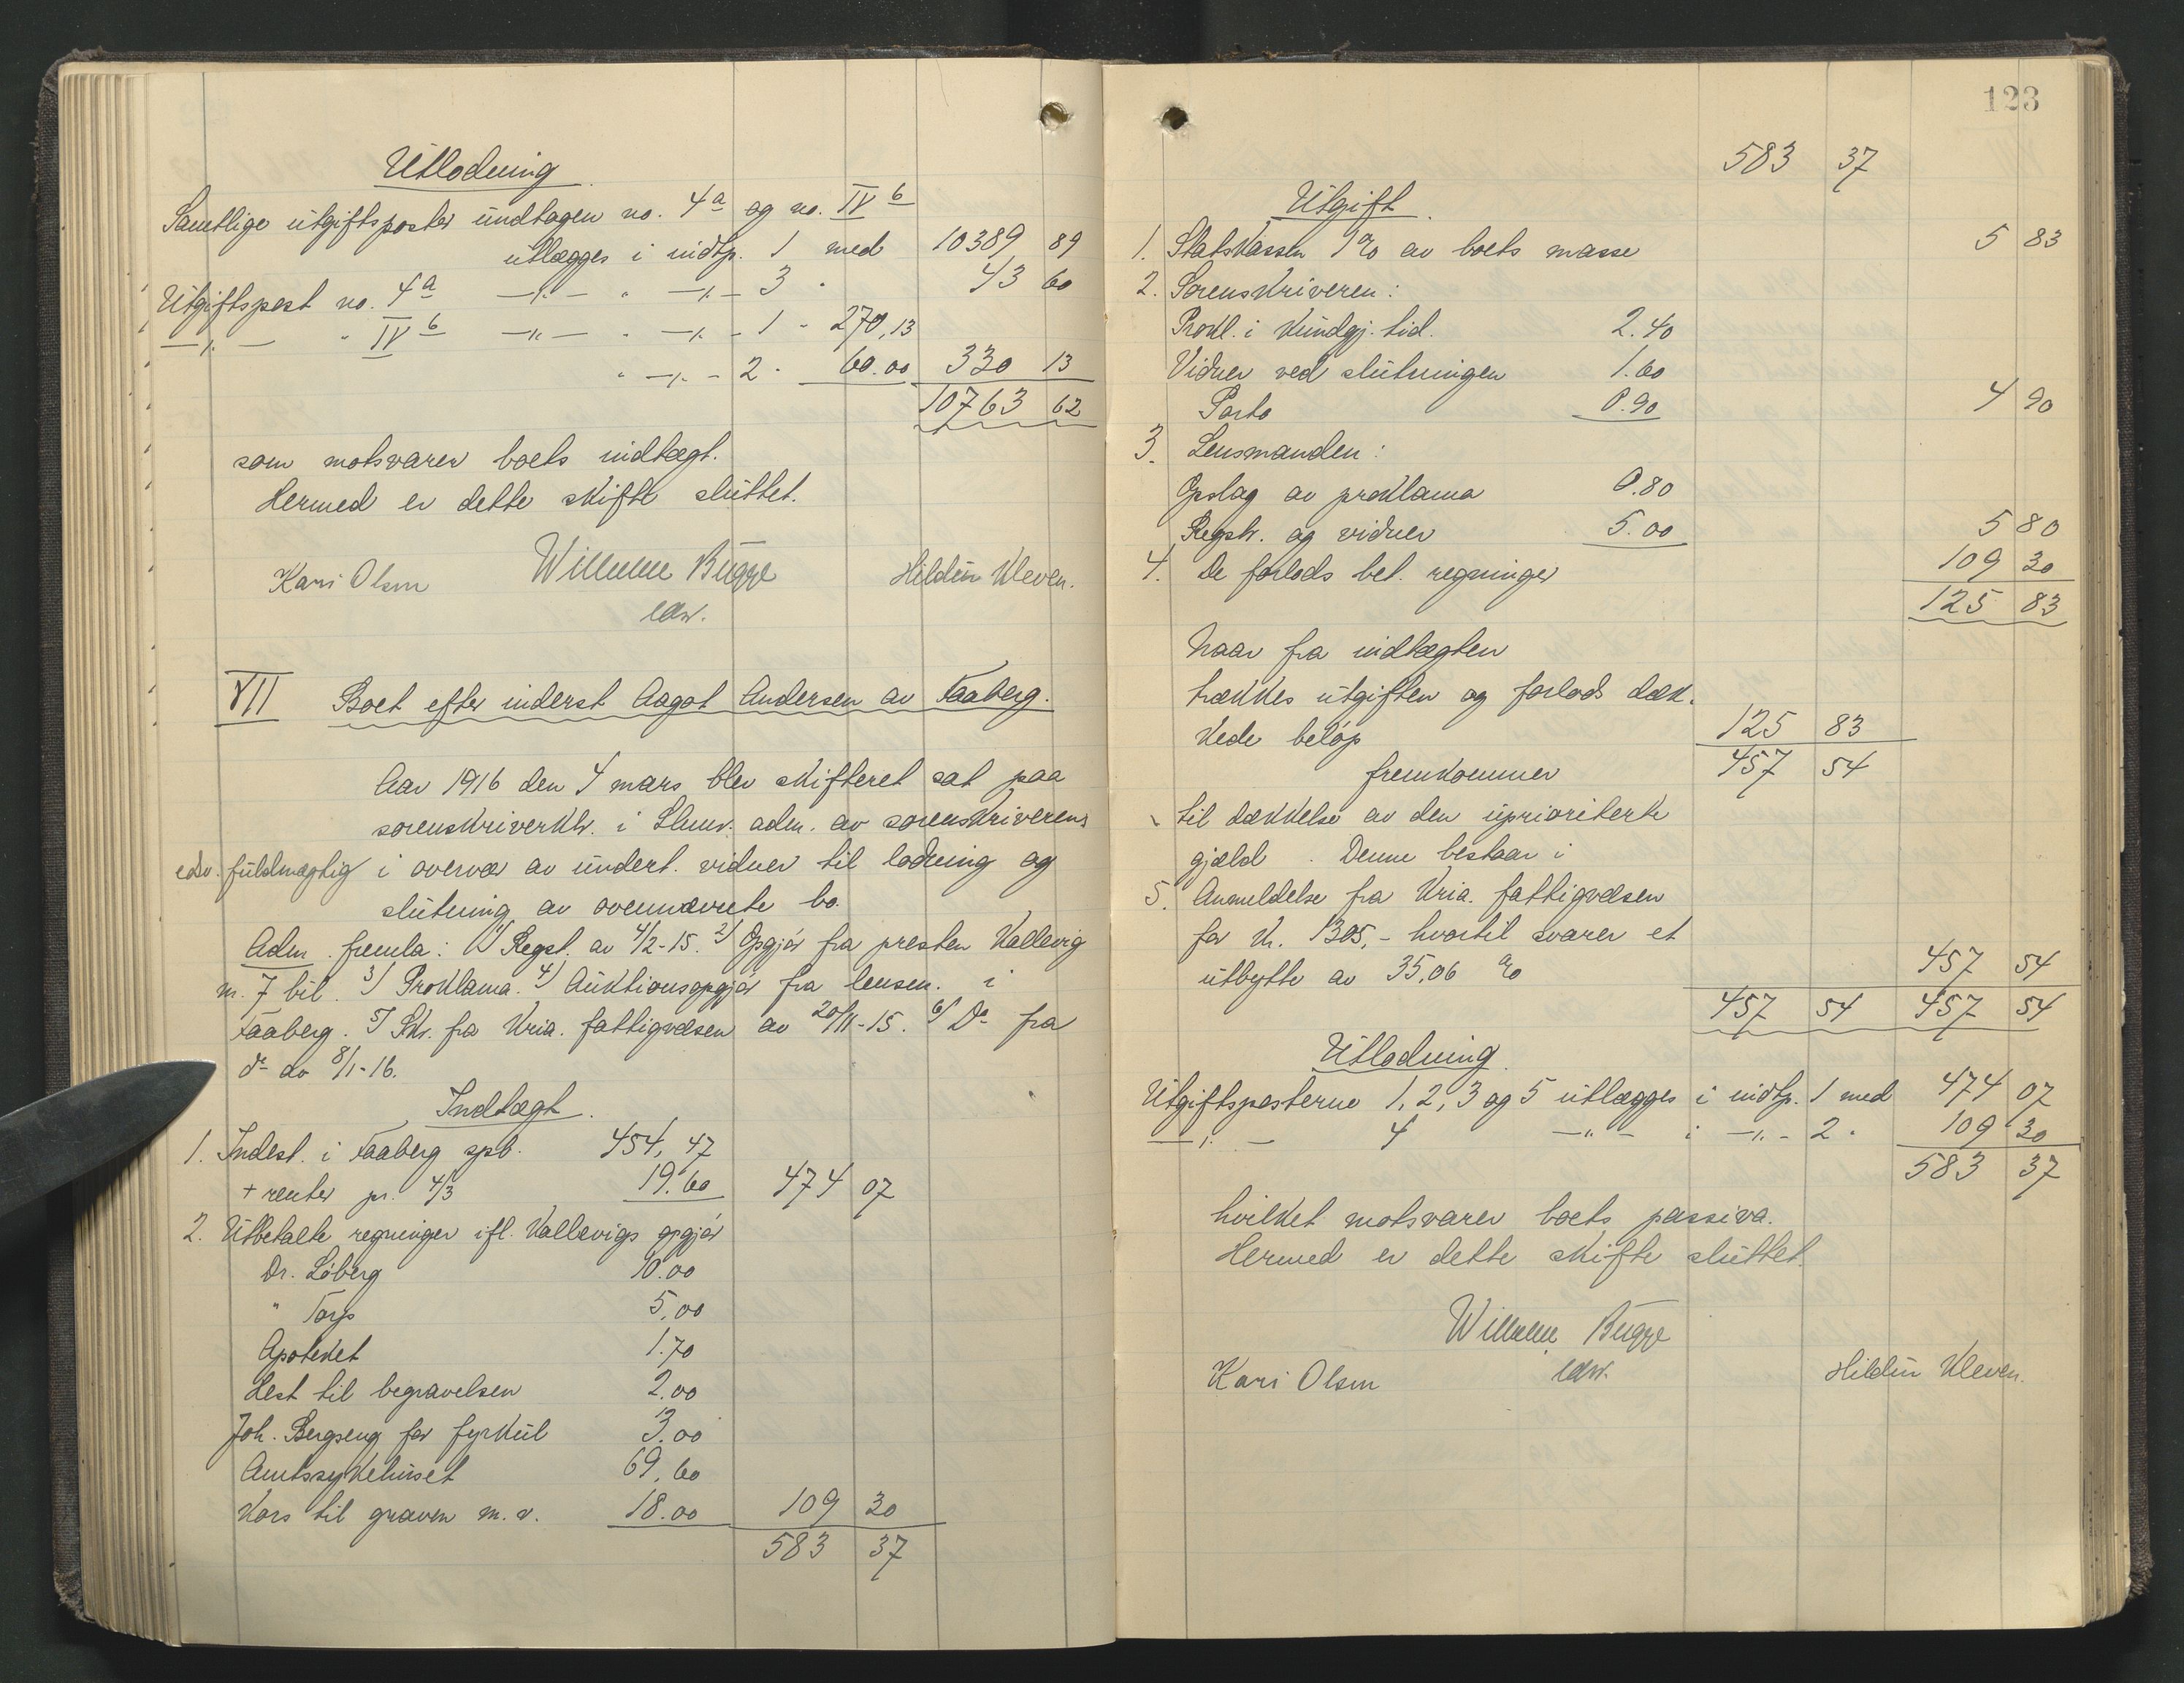 Utlodning.
Samtlige utgiftsposter undtagen no. 4a og no. IV b
utlægges i indtp. 1 med 10389 89
Utgiftspost no. 4a —"— " —"— 3 " 43 60
—"— " IV b —"— " —"— 1 - 270,13
" —"— 2 - 60.00 330 13
10763 62
som motsvarer boets indtægt.
Hermed er dette skifte sluttet.
Kari Olsen Wilhelm Bugge Hildur Kleven.
edsv.
VII Boet efter inderst Aagot Andersen av Faaberg.
Aar 1916 den 4 mars blev skifteret sat paa
sorenskriverktr. i Lhmr. adm. av sorenskriverens
edsv. fuldmægtig i overvær av undert. vidner til lodning og
slutning av ovennævnte bo.
Adm. fremla: 1) Regst. av 4/2-15. 2) Opgjør fra presten Kallevig
m. 7 bil. 3) Proklama. 4) Auktionsopgjør fra lensm. i
Faaberg. 5) Skr. fra Kria. fattigvæsen av 20/11-15. 6) Do fra
do av 8/1-16.
Indtægt.
1. Indest. i Faaberg spb. 454,47
+ renter pr. 4/3 19.60 474 07
2. Utbetalte regninger ifl. Kallevigs opgjør
Dr. Løberg 10.00
" Torp 5,00
Apoteket 1.70
Hest til begravelsen 2.00
Joh. Bergseng for fyrkul 3.00
Amtssykehuset 69,60
Kors til graven m. v. 18.00 109 30
583 37
123
583 37
Utgift.
1. Statskassen 1% av boets masse 5 83
2. Sorenskriveren:
Prokl. i kundgj. tid. 2.40
Vidner ved slutningen 1.60
Porto 0.90 4 90
3. Lensmanden:
Opslag av proklama 0.80
Regstr. og vidner 5.00 5 80
4. De forlods bet. regninger 109 30
125 83
Naar fra indtægten
trækkes utgiften og forlods dæk-
kede beløp 125 83
fremkommer 457 54
til dækkelse av den uprioriterte
gjæld. Denne bestaar i
5. Anmeldelse fra Kria. fattigvæsen
for kr. 1305,- hvortil svarer et
utbytte av 35.06 % 457 54
457 54 457 54
Utlodning.
Utgiftsposterne 1, 2, 3 og 5 utlægges i indtp. 1 med 474 07
—"— 4 —"— i —"— 2 - 109 30
583 37
hvilket motsvarer boets passiva.
Hermed er dette skifte sluttet.
Wilhelm Bugge
Kari Olsen edsv. Hildur Kleven.